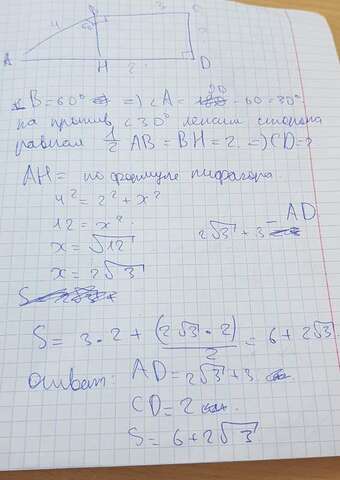 4 B 3 C
60° 2
A H 2 D
∠B = 60° => ∠A = 90 - 60 = 30°
на против ∠30° лежит сторона
равная 1/2 AB = BH = 2. => CD = 2
AH = по формуле пифагора.
4² = 2² + x²
12 = x²
x = √12
x = 2√3
2√3 + 3 = AD
S = 3 · 2 + (2√3 · 2)/2 = 6 + 2√3
ответ: AD = 2√3 + 3
CD = 2 см.
S = 6 + 2√3